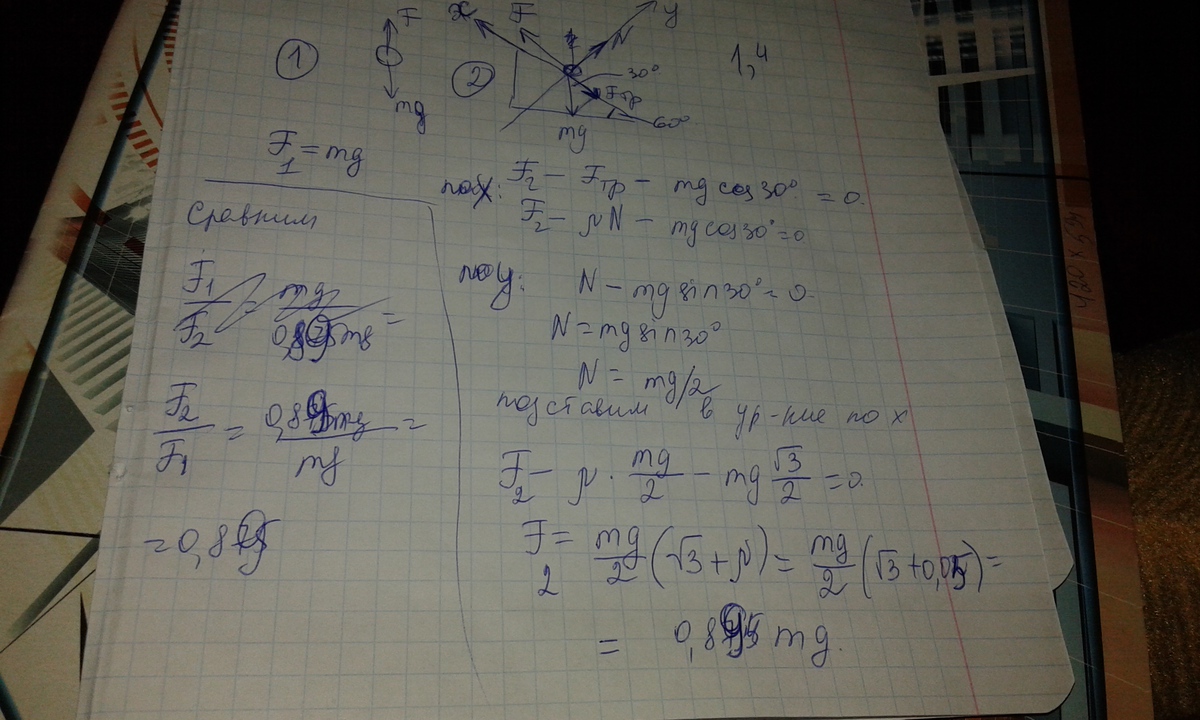 ① F mg
② x F N y 30° Fтр mg 60°
1,4
F₁ = mg
Сравним
F₁/F₂ = mg
F₂/F₁ = mg =
по x: F₂ − Fтр − mg cos30° = 0.
F₂ − μN − mg cos30° = 0
по y: N − mg sin30° = 0.
N = mg sin30°
N = mg/2
подставим в ур-ние по x
F₂ − μ · mg/2 − mg √3/2 = 0.
F₂ = mg/2 (√3 + μ) = mg/2 (√3 +
= mg.